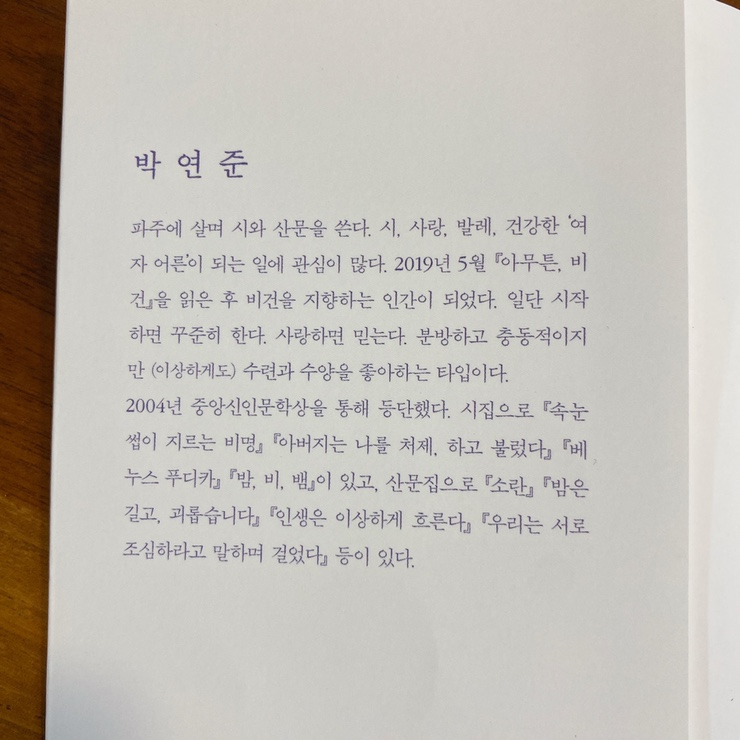 박연준
파주에 살며 시와 산문을 쓴다. 시, 사랑, 발레, 건강한 ‘여
자 어른’이 되는 일에 관심이 많다. 2019년 5월 『아무튼, 비
건』을 읽은 후 비건을 지향하는 인간이 되었다. 일단 시작
하면 꾸준히 한다. 사랑하면 믿는다. 분방하고 충동적이지
만 (이상하게도) 수련과 수양을 좋아하는 타입이다.
2004년 중앙신인문학상을 통해 등단했다. 시집으로 『속눈
썹이 지르는 비명』 『아버지는 나를 처제, 하고 불렀다』 『베
누스 푸디카』 『밤, 비, 뱀』이 있고, 산문집으로 『소란』 『밤은
길고, 괴롭습니다』 『인생은 이상하게 흐른다』 『우리는 서로
조심하라고 말하며 걸었다』 등이 있다.